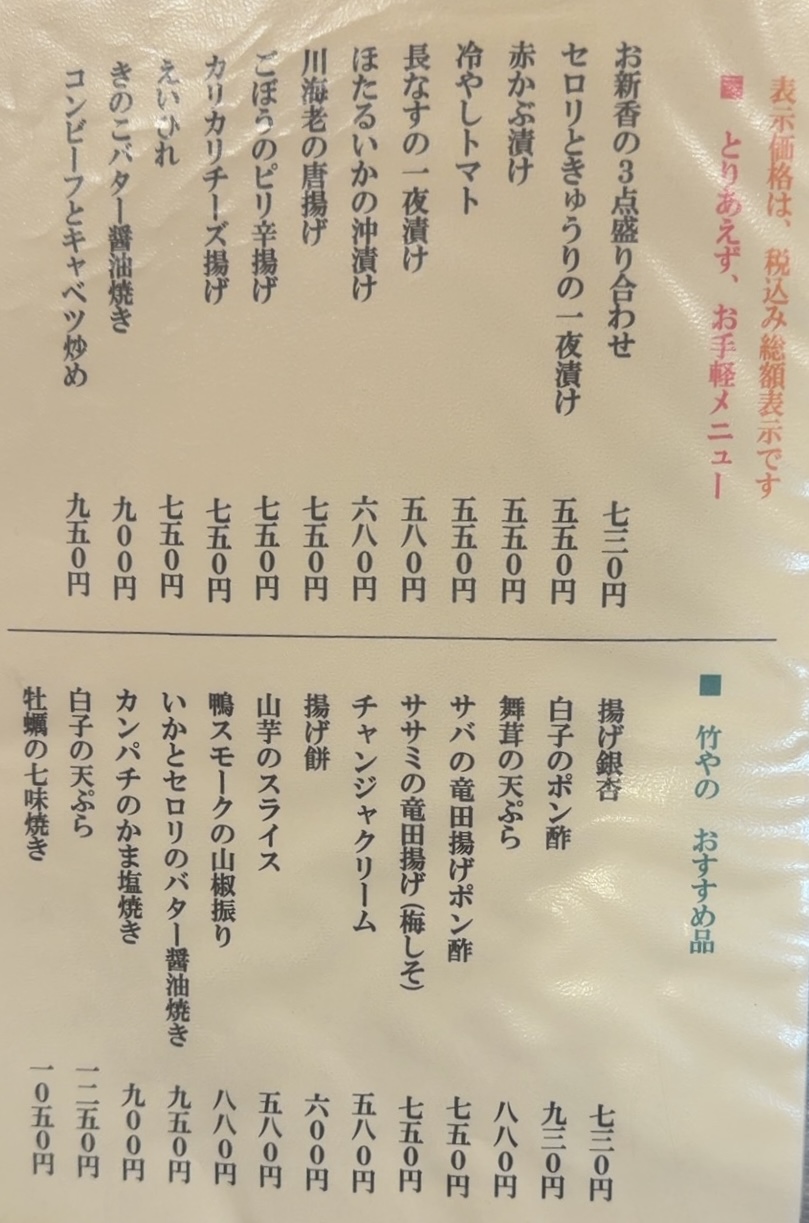 表示価格は、税込み総額表示です
■ とりあえず、お手軽メニュー
お新香の3点盛り合わせ 七三0円
セロリときゅうりの一夜漬け 五五0円
赤かぶ漬け 五五0円
冷やしトマト 五五0円
長なすの一夜漬け 五八0円
ほたるいかの沖漬け 六八0円
川海老の唐揚げ 七五0円
ごぼうのピリ辛揚げ 七五0円
カリカリチーズ揚げ 七五0円
えいひれ 七五0円
きのこバター醤油焼き 九00円
コンビーフとキャベツ炒め 九五0円
■ 竹やの おすすめ品
揚げ銀杏 七三0円
白子のポン酢 九三0円
舞茸の天ぷら 八八0円
サバの竜田揚げポン酢 七五0円
ササミの竜田揚げ(梅しそ) 七五0円
チャンジャクリーム 五八0円
揚げ餅 六00円
山芋のスライス 五八0円
鴨スモークの山椒振り 八八0円
いかとセロリのバター醤油焼き 九五0円
カンパチのかま塩焼き 九00円
白子の天ぷら 一二五0円
牡蠣の七味焼き 一0五0円